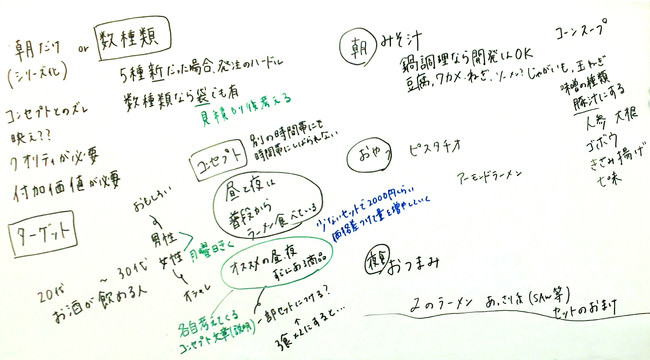 朝だけ or 数種類
(シリーズ化)
5種新だった場合、発注のハードル
数種類なら袋でも有
見積かり後考える
コンセプトとのズレ
映え??
クオリティが必要
付加価値が必要
コンセプト
別の時間帯にて
時間帯にしばられない
昼と夜は
普段から
ラーメン食べている
少ないセットで2000円くらい
価格差つけて量を増やしていく
ターゲット
おもしろい
男性
女性
オシャレ
月曜日きく
20代 ~ 30代
お酒が飲める人
オススメの昼、夜
にある商品
各自考えてくる
コンセプト文章(説明)
一部セットにつける?
3食×2にすると…
朝 みそ汁
鍋調理なら開発はOK
豆腐、ワカメ、ねぎ、ソーメン?じゃがいも、玉ねぎ
味噌の種類
豚汁にする
人参 大根
ゴボウ
きざみ揚げ
七味
コーンスープ
おやつ ピスタチオ
アーモンドラーメン
夜食 おつまみ
〆のラーメン あっさりよ
セットのおまけ